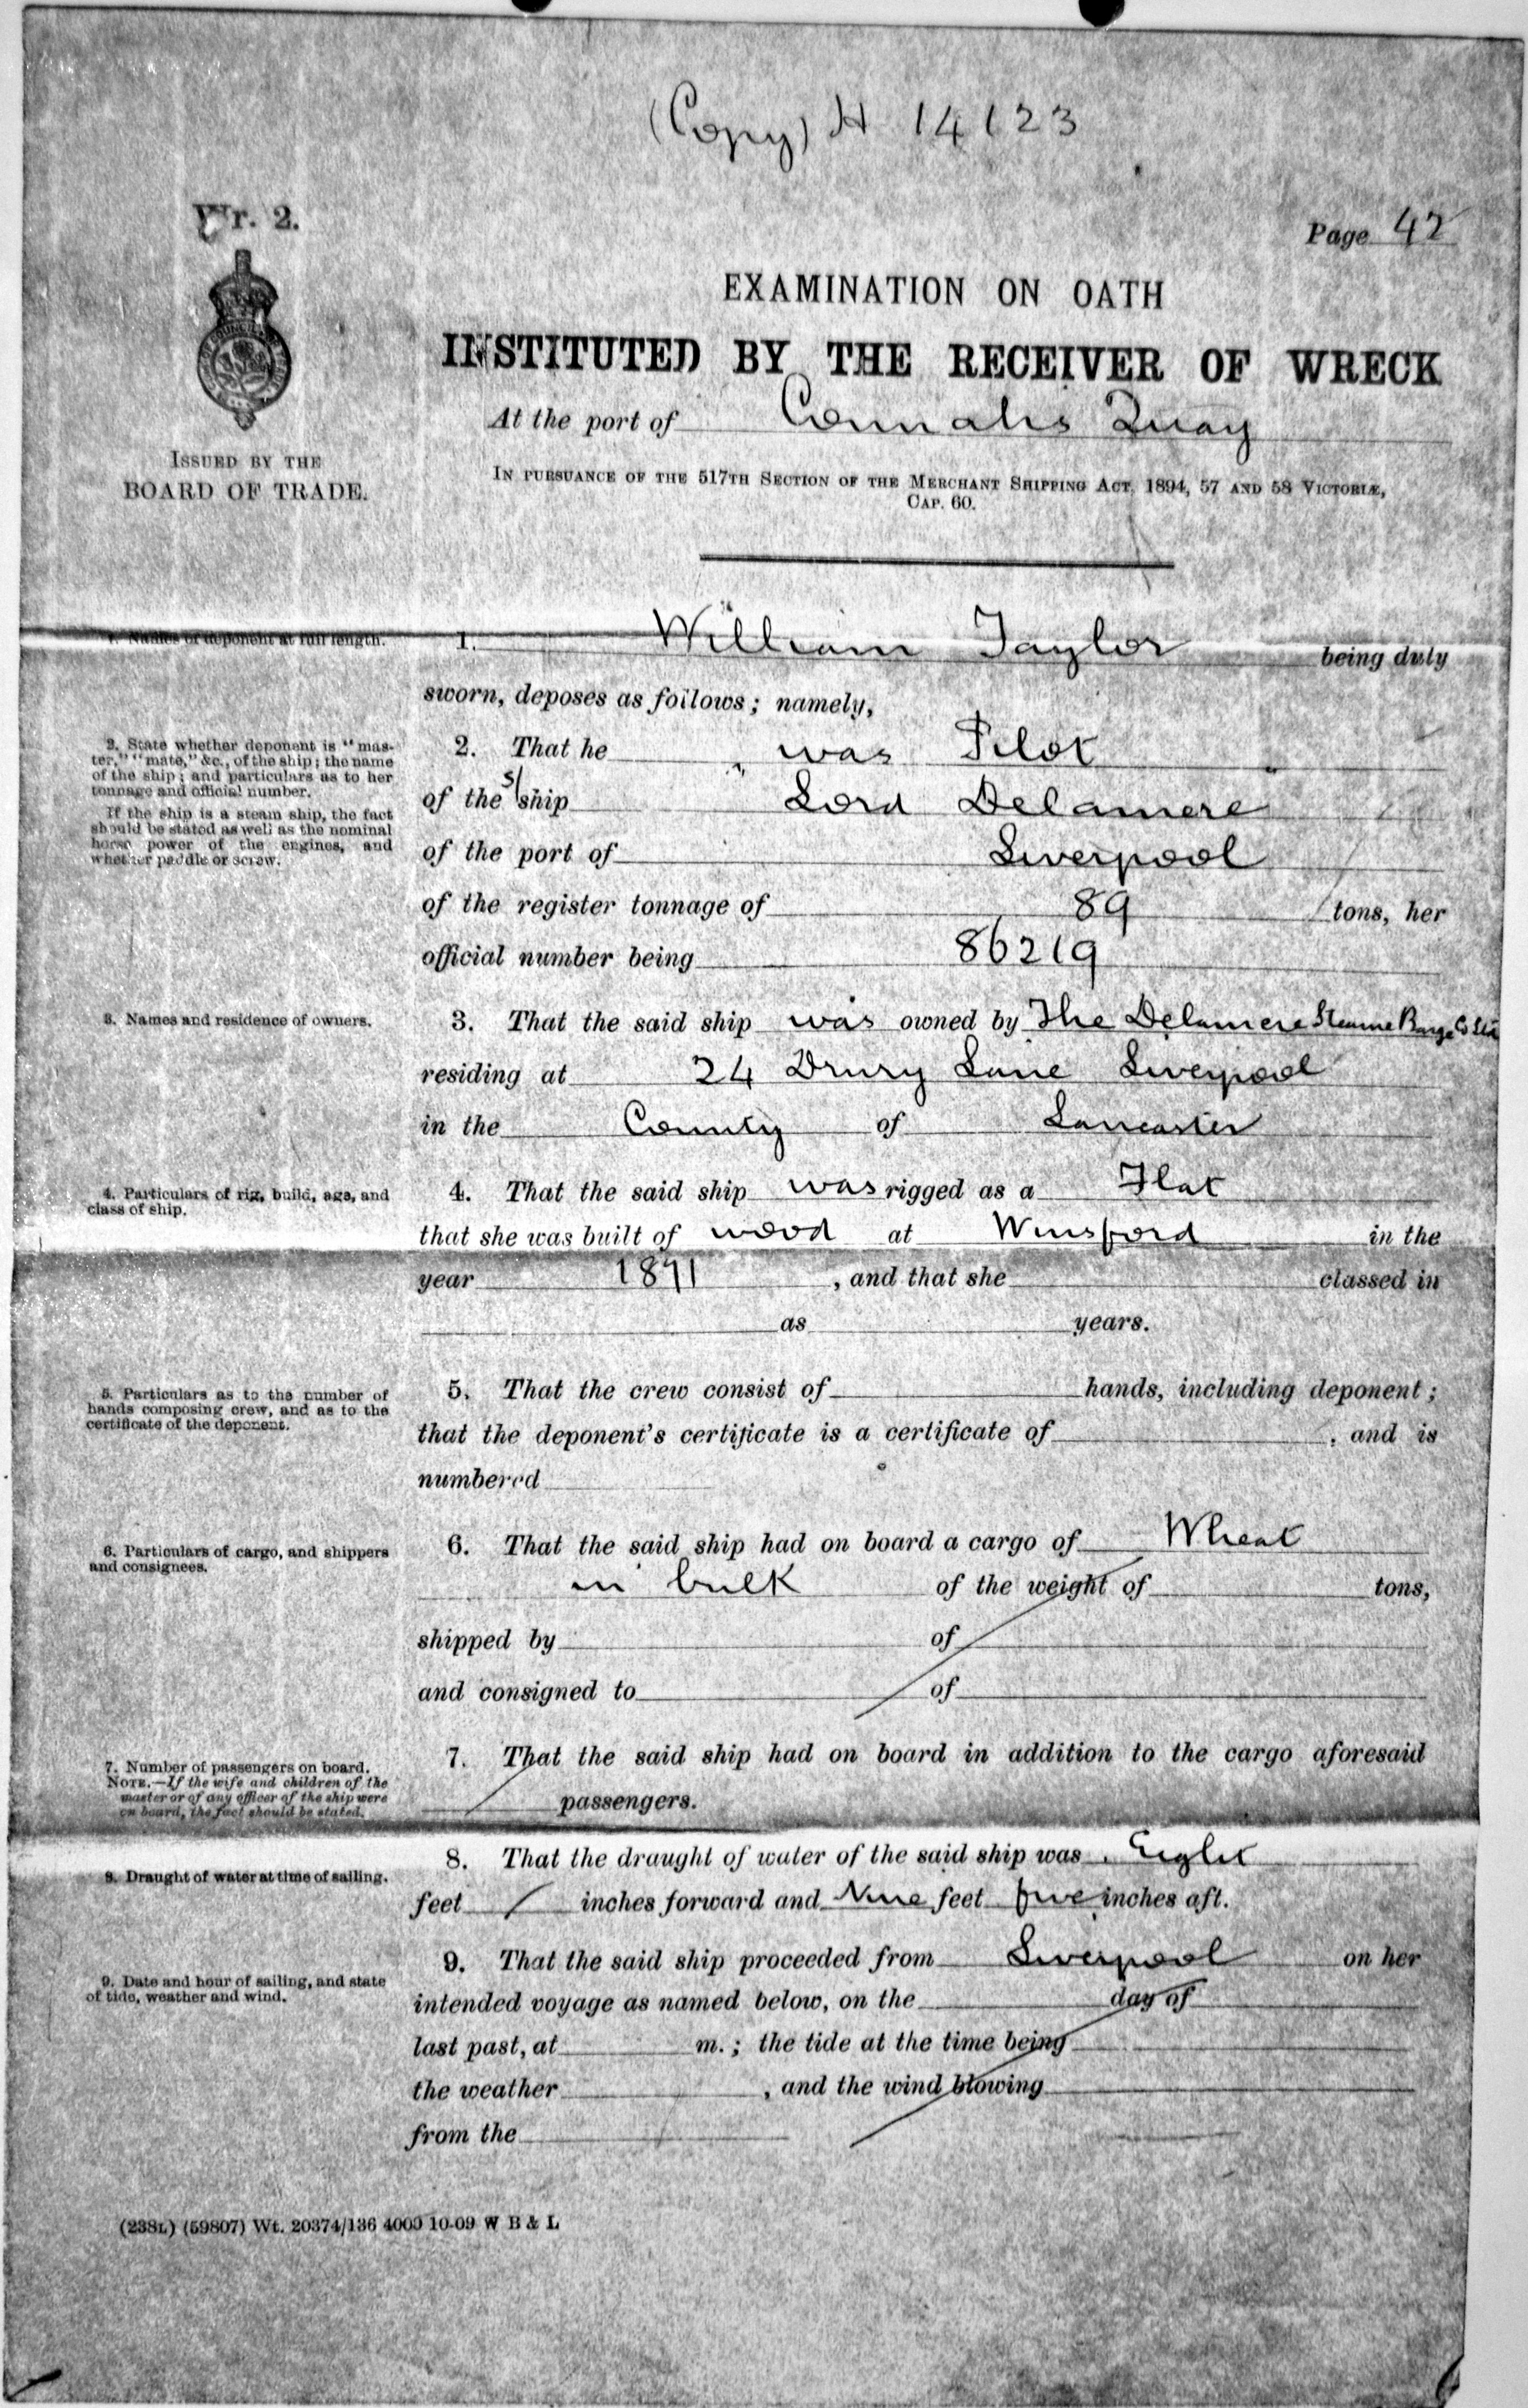 (Copy) H 14123
Wr. 2.
Page 42
EXAMINATION ON OATH
INSTITUTED BY THE RECEIVER OF WRECK
At the port of Connahs Quay
ISSUED BY THE
BOARD OF TRADE.
IN PURSUANCE OF THE 517TH SECTION OF THE MERCHANT SHIPPING ACT, 1894, 57 AND 58 VICTORIÆ,
CAP. 60.
1. Names of deponent at full length.
1. William Taylor being duly
sworn, deposes as follows; namely,
2. State whether deponent is "mas-
ter," "mate," &c., of the ship; the name
of the ship; and particulars as to her
tonnage and official number.
If the ship is a steam ship, the fact
should be stated as well as the nominal
horse power of the engines, and
whether paddle or screw.
2. That he was Pilot
of the s/ship Lord Delamere
of the port of Liverpool
of the register tonnage of 89 tons, her
official number being 86219
3. Names and residence of owners.
3. That the said ship was owned by The Delamere Steame Barge Co Ltd
residing at 24 Drury Lane Liverpool
in the County of Lancaster
4. Particulars of rig, build, age, and
class of ship.
4. That the said ship was rigged as a Flat
that she was built of wood at Winsford in the
year 1891, and that she classed in
as years.
5. Particulars as to the number of
hands composing crew, and as to the
certificate of the deponent.
5. That the crew consist of hands, including deponent;
that the deponent's certificate is a certificate of , and is
numbered
6. Particulars of cargo, and shippers
and consignees.
6. That the said ship had on board a cargo of Wheat
in bulk of the weight of tons,
shipped by of
and consigned to of
7. Number of passengers on board.
NOTE.—If the wife and children of the
master or of any officer of the ship were
on board, the fact should be stated.
7. That the said ship had on board in addition to the cargo aforesaid
passengers.
8. Draught of water at time of sailing.
8. That the draught of water of the said ship was Eight
feet / inches forward and Nine feet five inches aft.
9. Date and hour of sailing, and state
of tide, weather and wind.
9. That the said ship proceeded from Liverpool on her
intended voyage as named below, on the day of
last past, at m.; the tide at the time being
the weather , and the wind blowing
from the
(238L) (59807) Wt. 20374/136 4000 10-09 W B & L